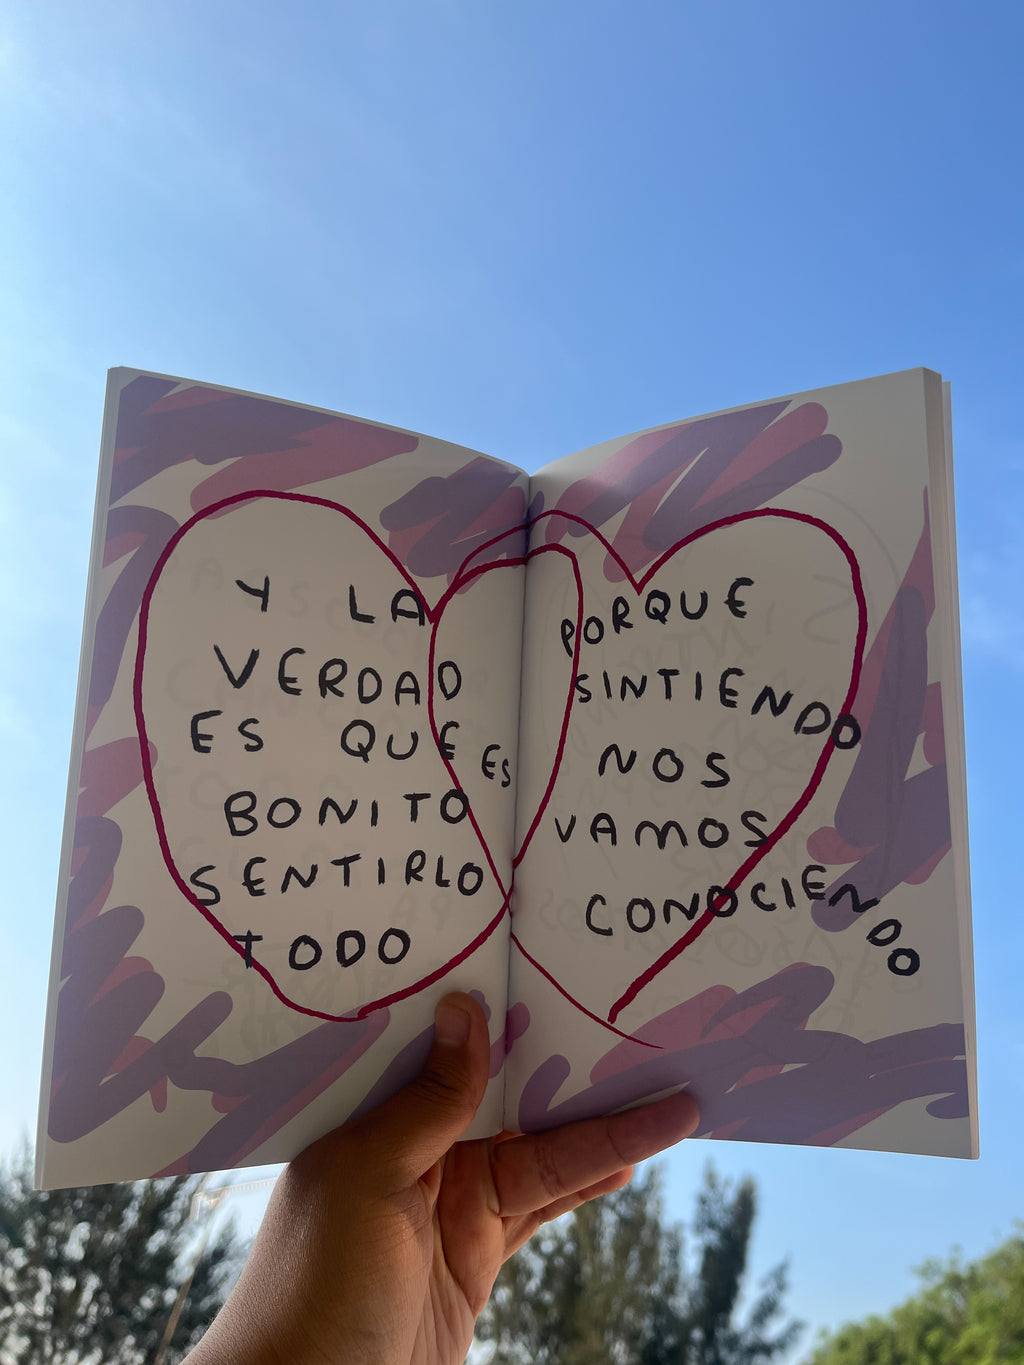 Y LA
VERDAD
ES QUE ES
BONITO
SENTIRLO
TODO
PORQUE
SINTIENDO
NOS
VAMOS
CONOCIENDO